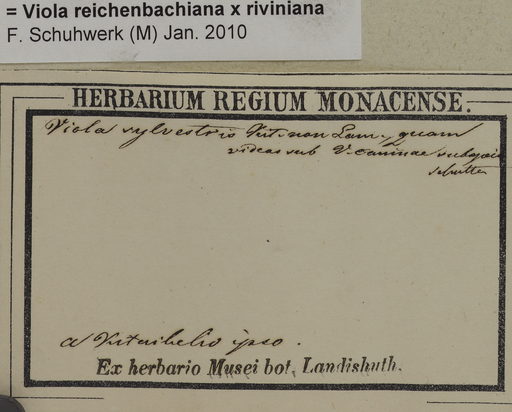 = Viola reichenbachiana x riviniana
F. Schuhwerk (M) Jan. 2010
HERBARIUM REGIUM MONACENSE.
Viola sylvestris Kit. non Lam., quam
videas sub V. caninae
a Kitaibelio ipso.
Ex herbario Musei bot. Landishuth.